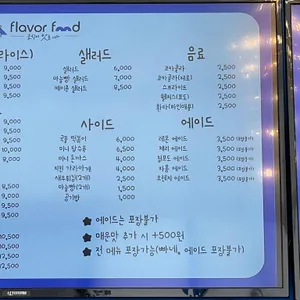 flavor food
라이스)
9,000
9,500
9,500
9,500
9,500
샐러드
샐러드 6,000
마늘빵 샐러드 7,000
케이준 샐러드 8,500
음료
코카콜라 2,500
코카콜라(제로) 2,500
스프라이트 2,500
웰치스(포도) 2,500
환타(파인애플) 2,500
9,000
9,500
9,500
10,000
8,000
사이드
국물 떡볶이 6,000
미니 탕수육 6,500
미니 돈까스 4,000
치킨 가라아게
새우튀김(2개) 2,500
마늘빵(2개) 1,500
공기밥 1,000
에이드
레몬 에이드 3,500
체리 에이드 3,500
자몽 에이드 3,500
3,500
3,500
8,500
9,500
9,500
9,500
10,500
12,500
12,500
에이드는 포장불가
매운맛 추가 시 +500원
전 메뉴 포장가능(빠네, 에이드 포장불가)